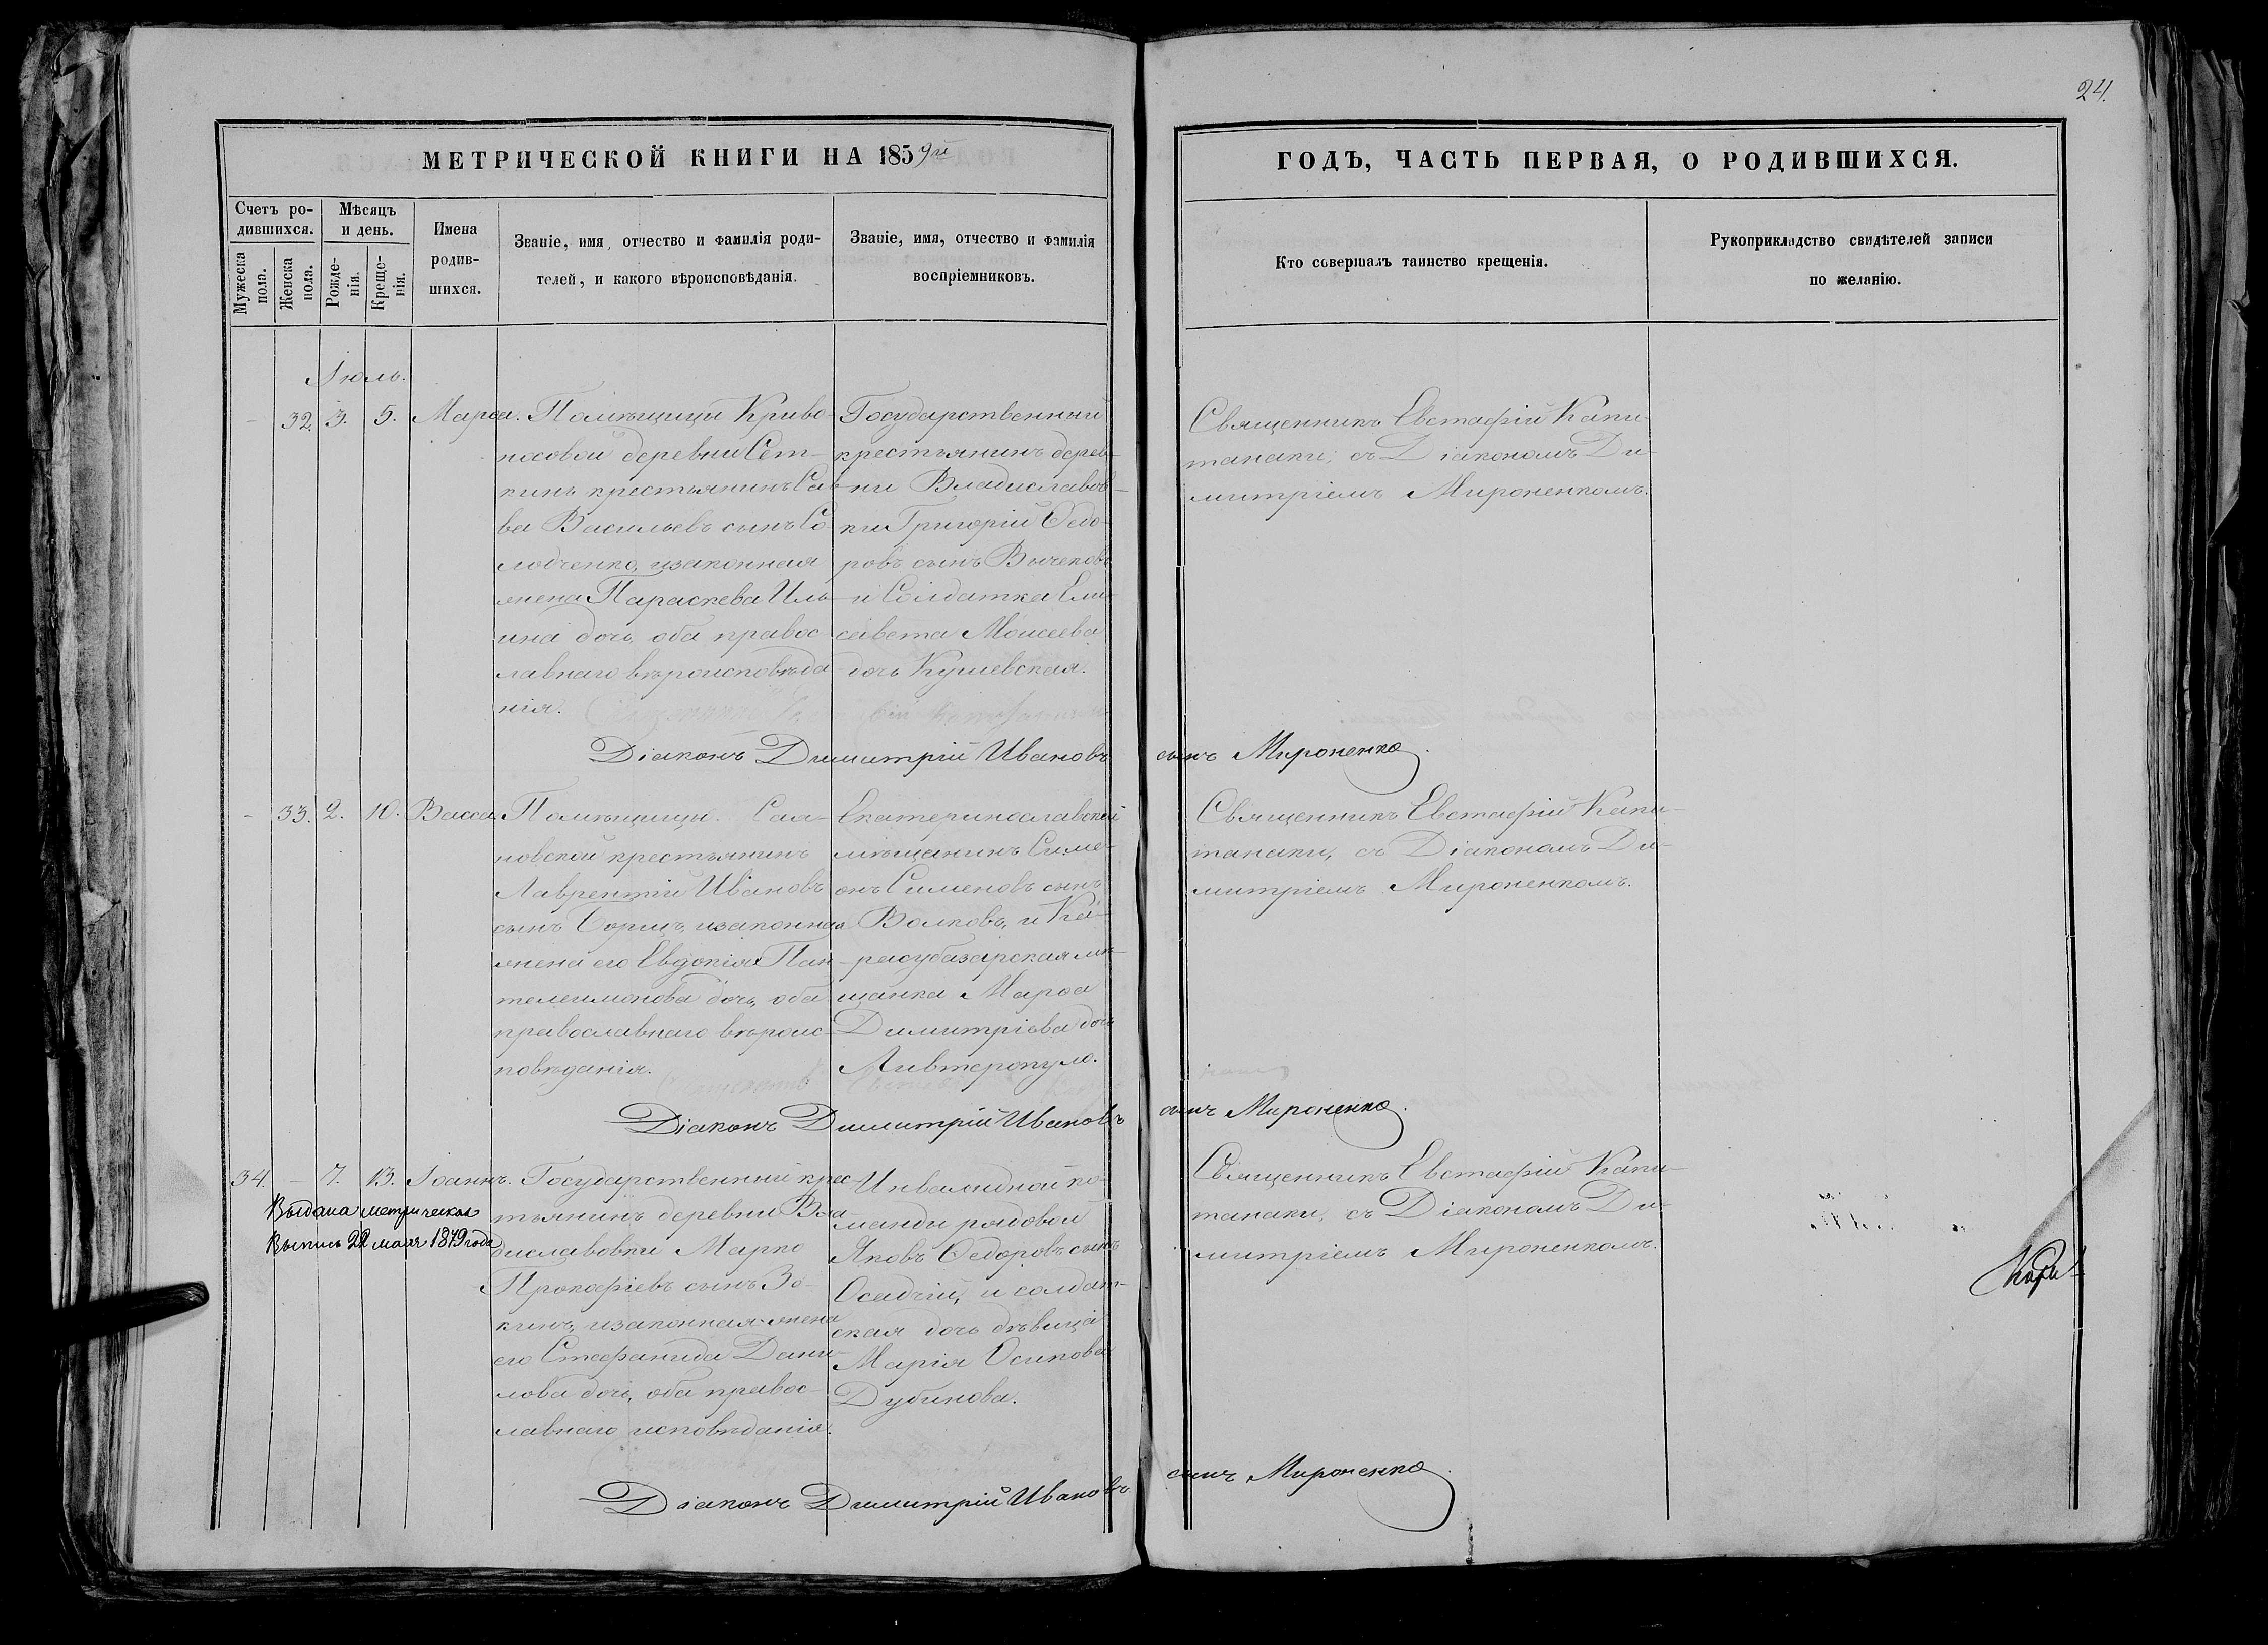 24.
МЕТРИЧЕСКОЙ КНИГИ НА 1859й
ГОДЪ, ЧАСТЬ ПЕРВАЯ, О РОДИВШИХСЯ.
Счетъ ро-
дившихся.
Мужеска
пола.
Женска
пола.
Мѣсяцъ
и день.
Рожде-
нія.
Креще-
нія.
Имена
родив-
шихся.
Званіе, имя, отчество и фамилія роди-
телей, и какого вѣроисповѣданія.
Званіе, имя, отчество и фамилія
воспріемниковъ.
Кто совершалъ таинство крещенія.
Рукоприкладство свидѣтелей записи
по желанію.
Іюль.
- 32. 3. 5. Марѳа.
Помѣщицы Криво-
носовой деревни Сет-
кинъ крестьянинъ Сав-
ва Васильевъ сынъ Со-
лодченко, изаконная
жена Параскева Иль-
ина дочь, оба правос-
лавнаго вѣроисповѣда-
нія.
Государственный
крестьянинъ дерев-
ни Владиславов-
ки Григорій Ѳедо-
ровъ сынъ Вычековъ
и Солдатка Ели-
савета Моисеева
дочь Кушевская.
Священникъ Евстафій Капи-
танаки, съ Діакономъ Ди-
митріемъ Мироненкомъ.
Діаконъ Димитрій Ивановъ сынъ Мироненко.
- 33. 2. 10. Васса.
Помѣщицы
новской крестьянинъ
Лаврентій Ивановъ
сынъ изаконная
жена его Евдокія Пан-
телеимонова дочь, оба
православнаго вѣроис-
повѣданія.
Екатеринославскій
мѣщанинъ Симе-
онъ Сименовъ сынъ
Волковъ, и Ка-
расубазарская мѣ-
щанка Марѳа
Димитріева дочь
Ливтеропуло.
Священникъ Евстафій Капи-
танаки, съ Діакономъ Ди-
митріемъ Мироненкомъ.
Діаконъ Димитрій Ивановъ сынъ Мироненко.
34. - 7. 13. Іоаннъ.
Выдана метрическая
Выпись 22 мая 1879 года
Государственный крес-
тьянинъ деревни Вла-
диславовки Марко
Прокофіевъ сынъ Зо-
кинъ, изаконная жена
его Стефанида Дани-
лова дочь, оба правос-
лавнаго исповѣданія.
Инвалидной ко-
манды рядовой
Яковъ Ѳедоровъ сынъ
Осадчій, и солдат-
ская дочь дѣвица
Марія Осипова
Дубинова.
Священникъ Евстафій Капи-
танаки, съ Діакономъ Ди-
митріемъ Мироненкомъ.
Діаконъ Димитрій Ивановъ сынъ Мироненко.